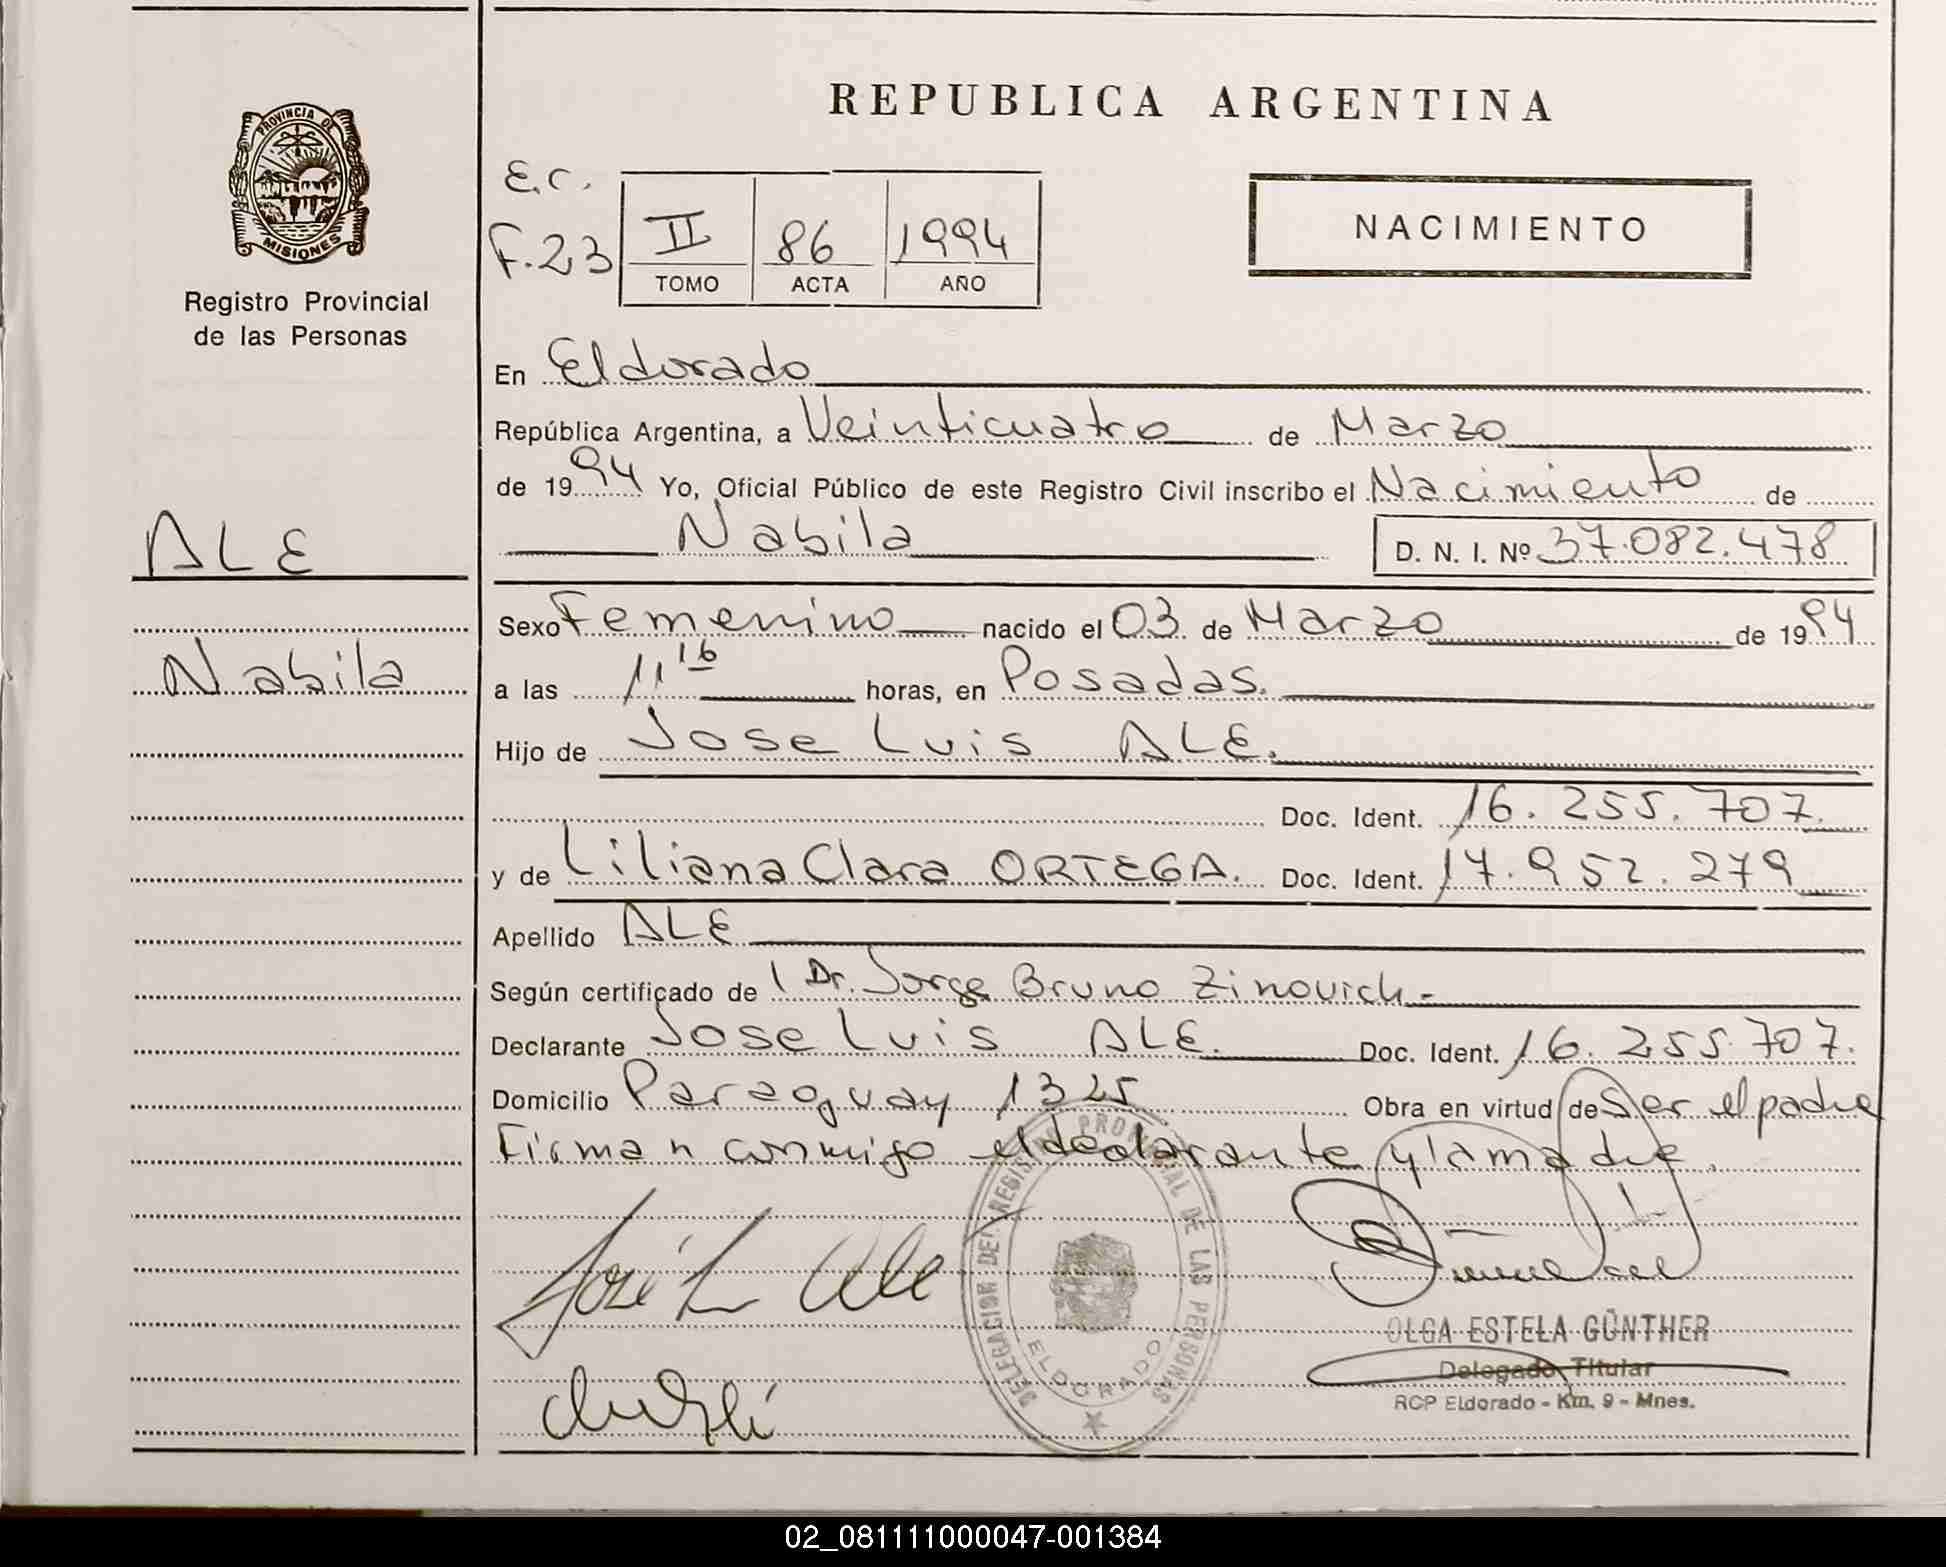 REPUBLICA ARGENTINA
PROVINCIA DE
MISIONES
Registro Provincial
de las Personas
E.C.
F.23
II 86 1994
TOMO ACTA AÑO
NACIMIENTO
En Eldorado
República Argentina, a Veinticuatro de Marzo
de 1994 Yo, Oficial Público de este Registro Civil inscribo el Nacimiento de
ALE
Nabila D. N. I. Nº 37.082.478
Sexo Femenino nacido el 03 de Marzo de 1994
Nabila
a las 11 16 horas, en Posadas.
Hijo de Jose Luis ALE.
Doc. Ident. 16.255.707.
y de Liliana Clara ORTEGA. Doc. Ident. 17.952.279
Apellido ALE
Según certificado de l Dr. Jorge Bruno Zinovich-
Declarante Jose Luis ALE. Doc. Ident. 16.255.707.
Domicilio Paraguay 1325 Obra en virtud de Ser el padre
Firman conmigo el declarante y la madre.
José L Ale
DELEGACION DEL REGISTRO PROVINCIAL DE LAS PERSONAS
ELDORADO
OLGA ESTELA GÜNTHER
Delegado Titular
RCP Eldorado - Km. 9 - Mnes.
02_081111000047-001384